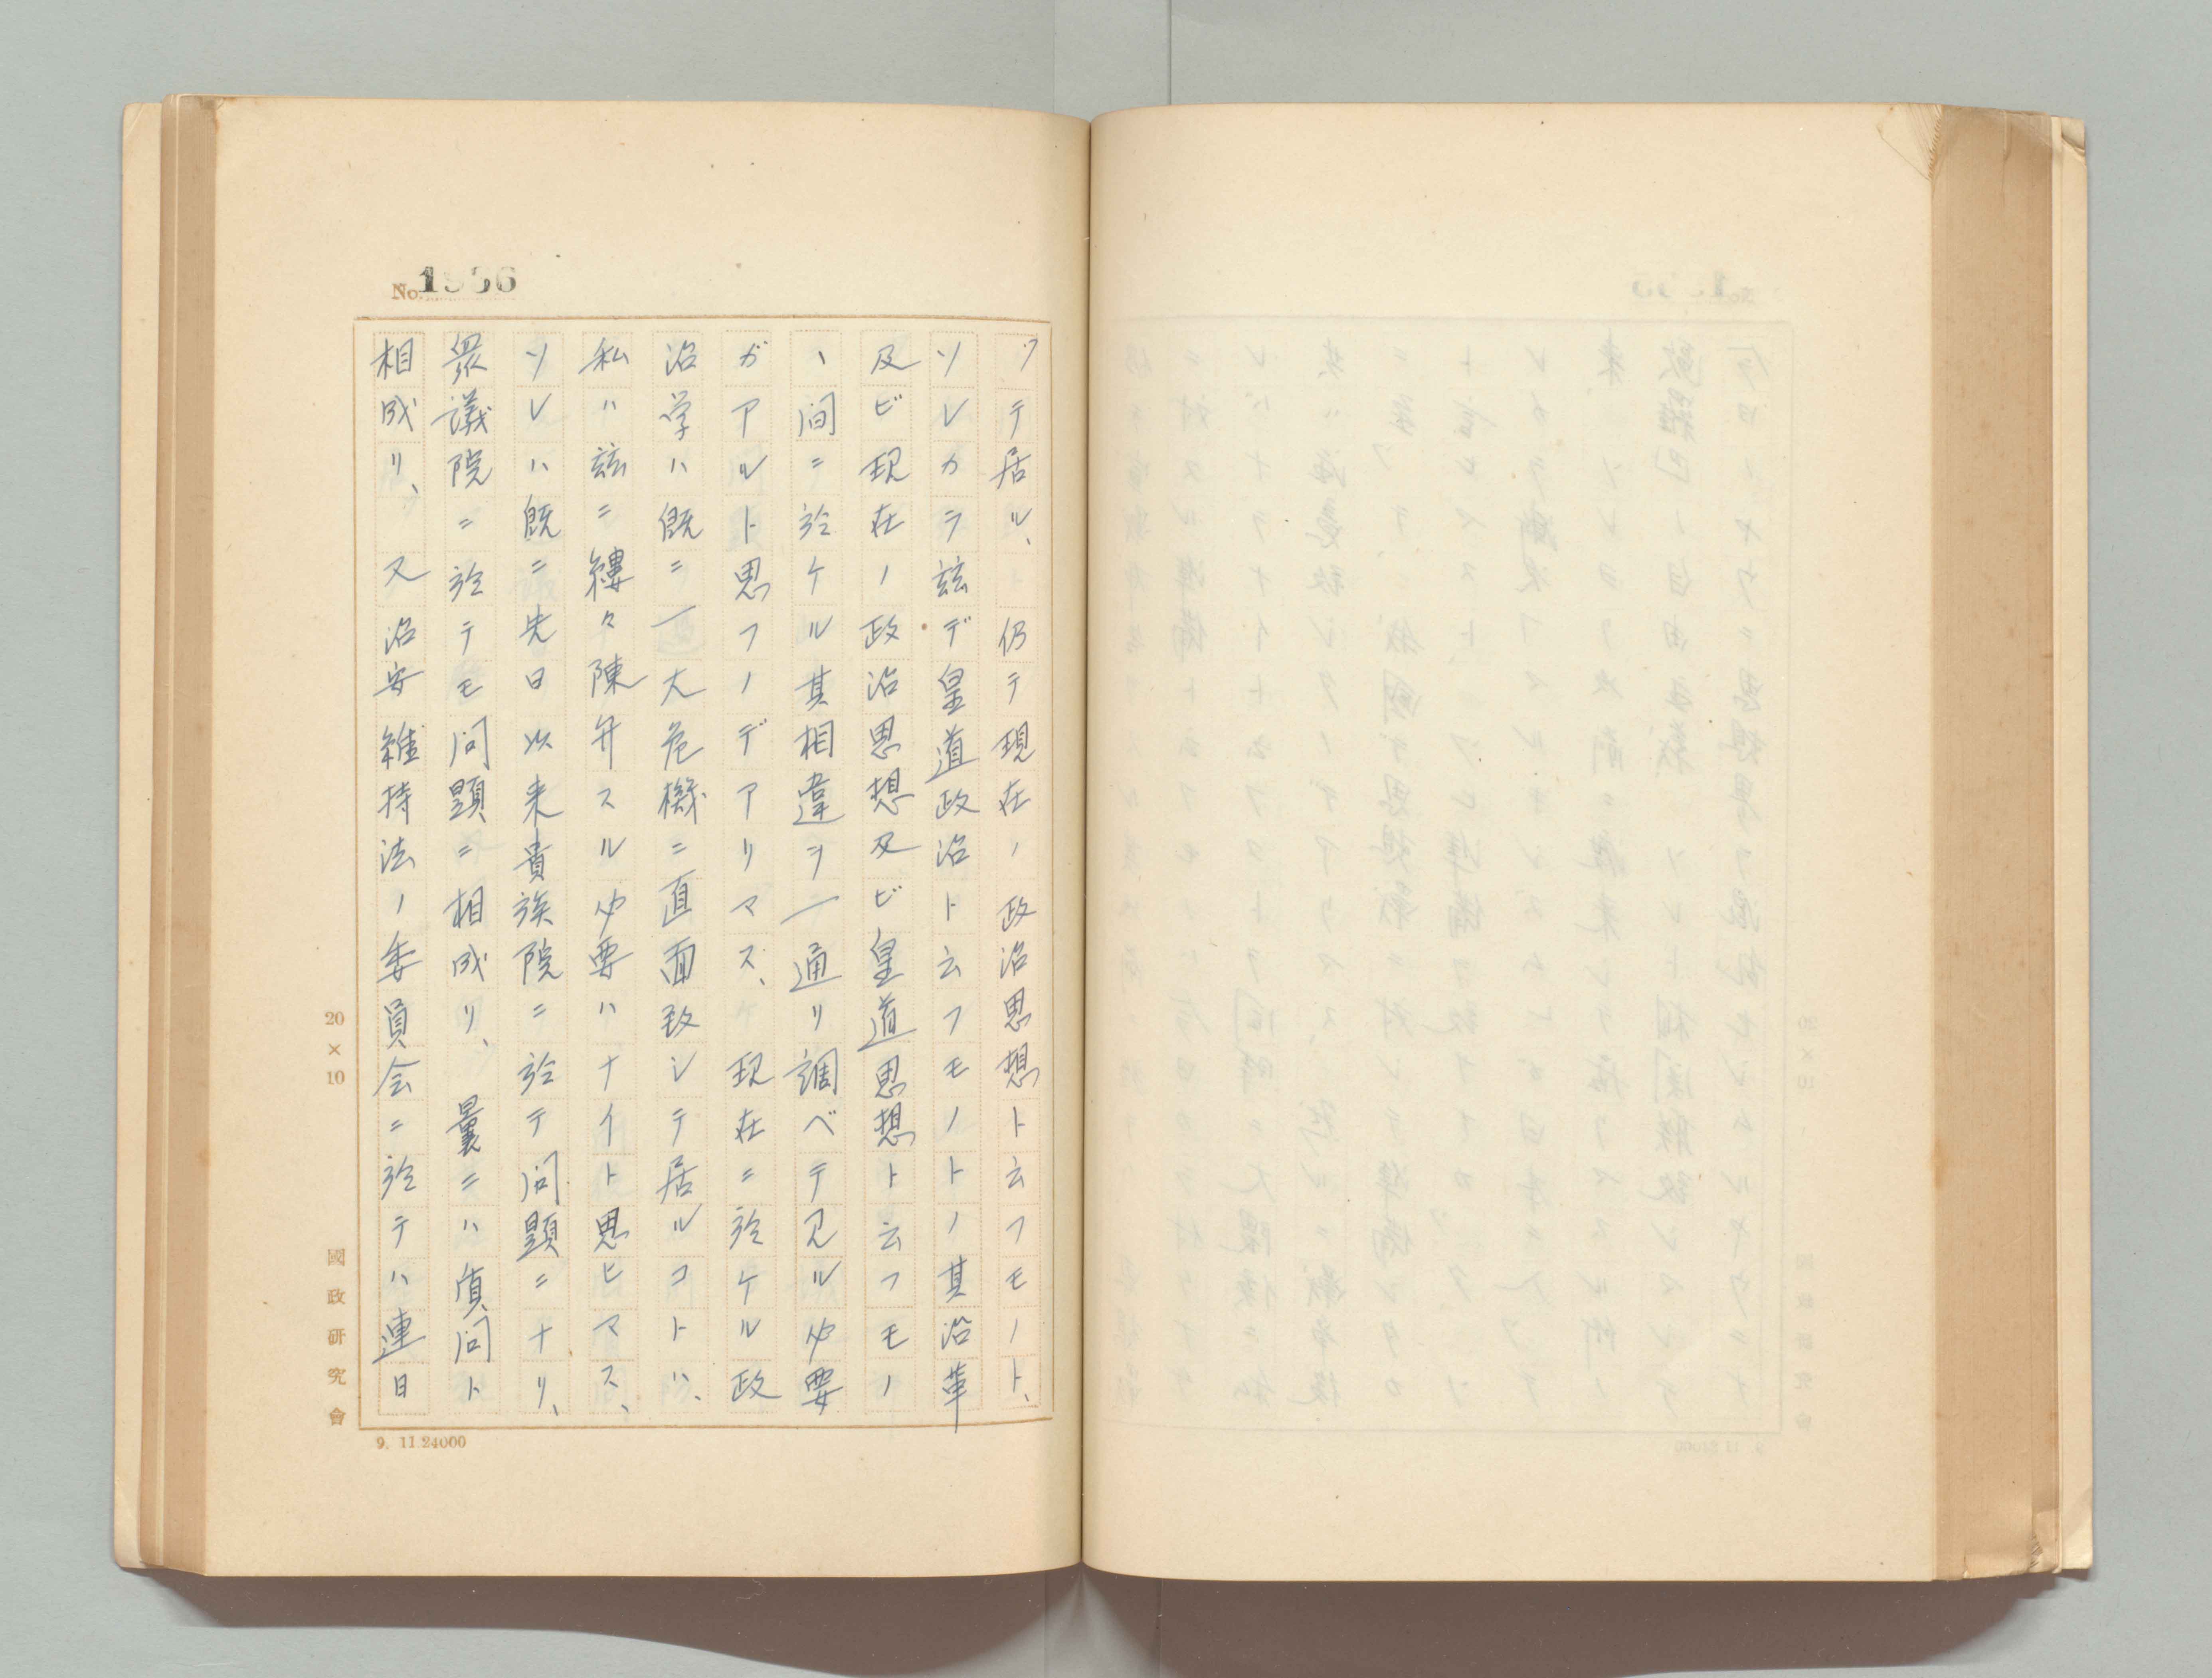 No. 1936
ツテ居ル、仍テ現在ノ政治思想ト云フモノト、
ソレカラ玆デ皇道政治ト云フモノトノ其沿革
及ビ現在ノ政治思想及ビ皇道思想ト云フモノ
ヽ間ニ於ケル其相違ヲ一通リ調ベテ見ル必要
ガアルト思フノデアリマス、現在ニ於ケル政
治学ハ既ニ一大危機ニ直面致シテ居ルコトハ、
私ハ玆ニ縷々陳弁スル必要ハナイト思ヒマス、
ソレハ既ニ先日以来貴族院ニ於テ問題ニナリ、
衆議院ニ於テモ問題ニ相成リ、曩ニハ質問ト
相成リ、又治安維持法ノ委員会ニ於テハ連日
20×10
國政研究會
9. 11.24000